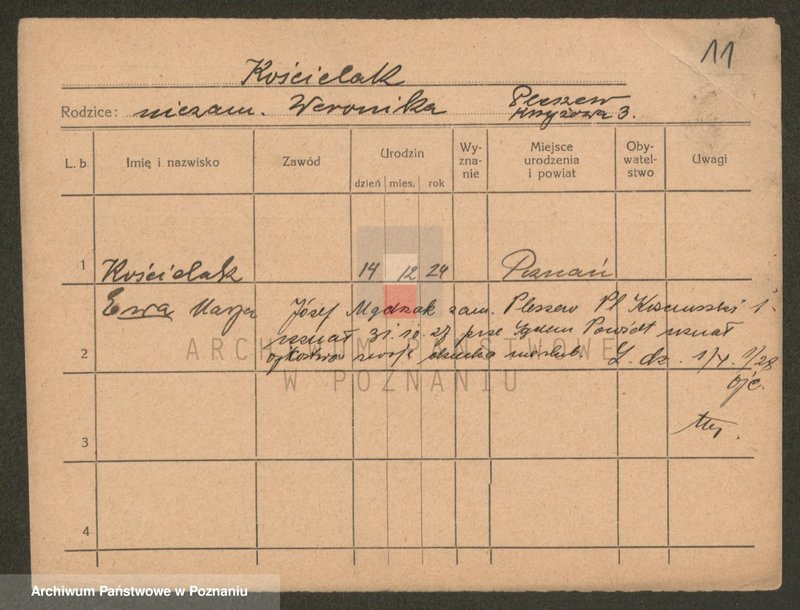 11
Kościelak
Rodzice: niezam. Weronika Pleszew
Krzyżowa 3.
L. b. Imię i nazwisko Zawód Urodzin dzień mies. rok Wy-zna-nie Miejsce urodzenia i powiat Oby-watel-stwo Uwagi
1 Kościelak 14 12 24 Poznań
Ewa Marja Józef zam. Pleszew Pl
uznał 31.10.27 Powiat uznał
2 swoje L. dz. 1/4. 1/28
ojc.
3
4
ARCHIWUM PAŃSTWOWE
W POZNANIU
Archiwum Państwowe w Poznaniu